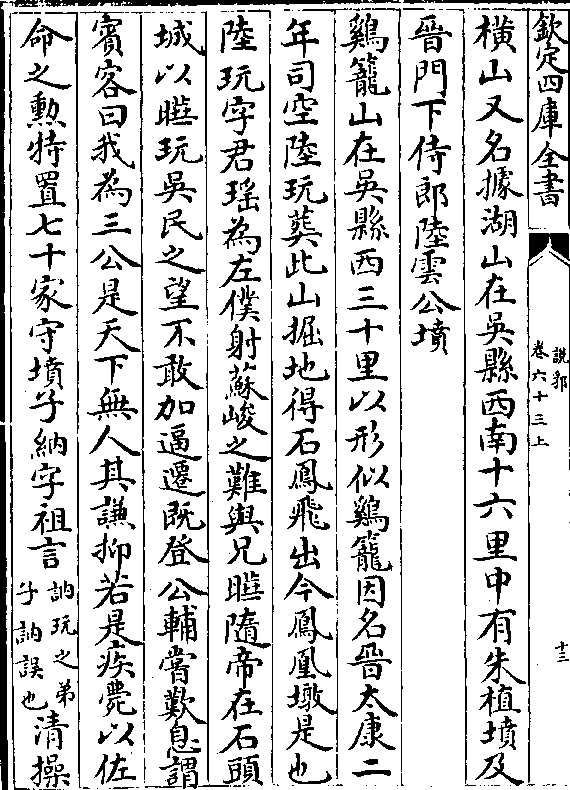 欽定四庫全書
說郛
卷六十三上
十三
橫山又名據湖山在吳縣西南十六里中有朱植墳及
晉門下侍郎陸雲公墳
鷄籠山在吳縣西三十里以形似鷄籠因名晉太康二
年司空陸玩葬此山掘地得石鳳飛出今鳳凰墩是也
陸玩字君瑶為左僕射蘇峻之難與兄曄隨帝在石頭
城以曄玩吳民之望不敢加逼遷既登公輔嘗歎息謂
賓客曰我為三公是天下無人其謙抑若是疾薨以佐
命之勲特置七十家守墳子納字祖言訥玩之弟子訥誤也清操